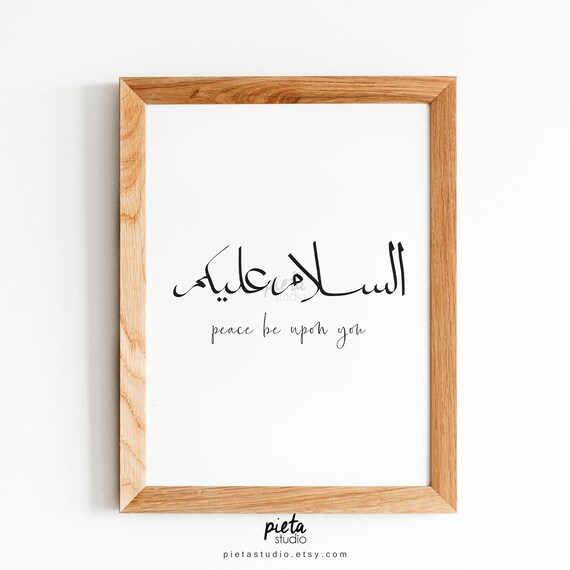 السلام عليكم
pieta
studio
peace be upon you
pieta
studio
pietastudio.etsy.com